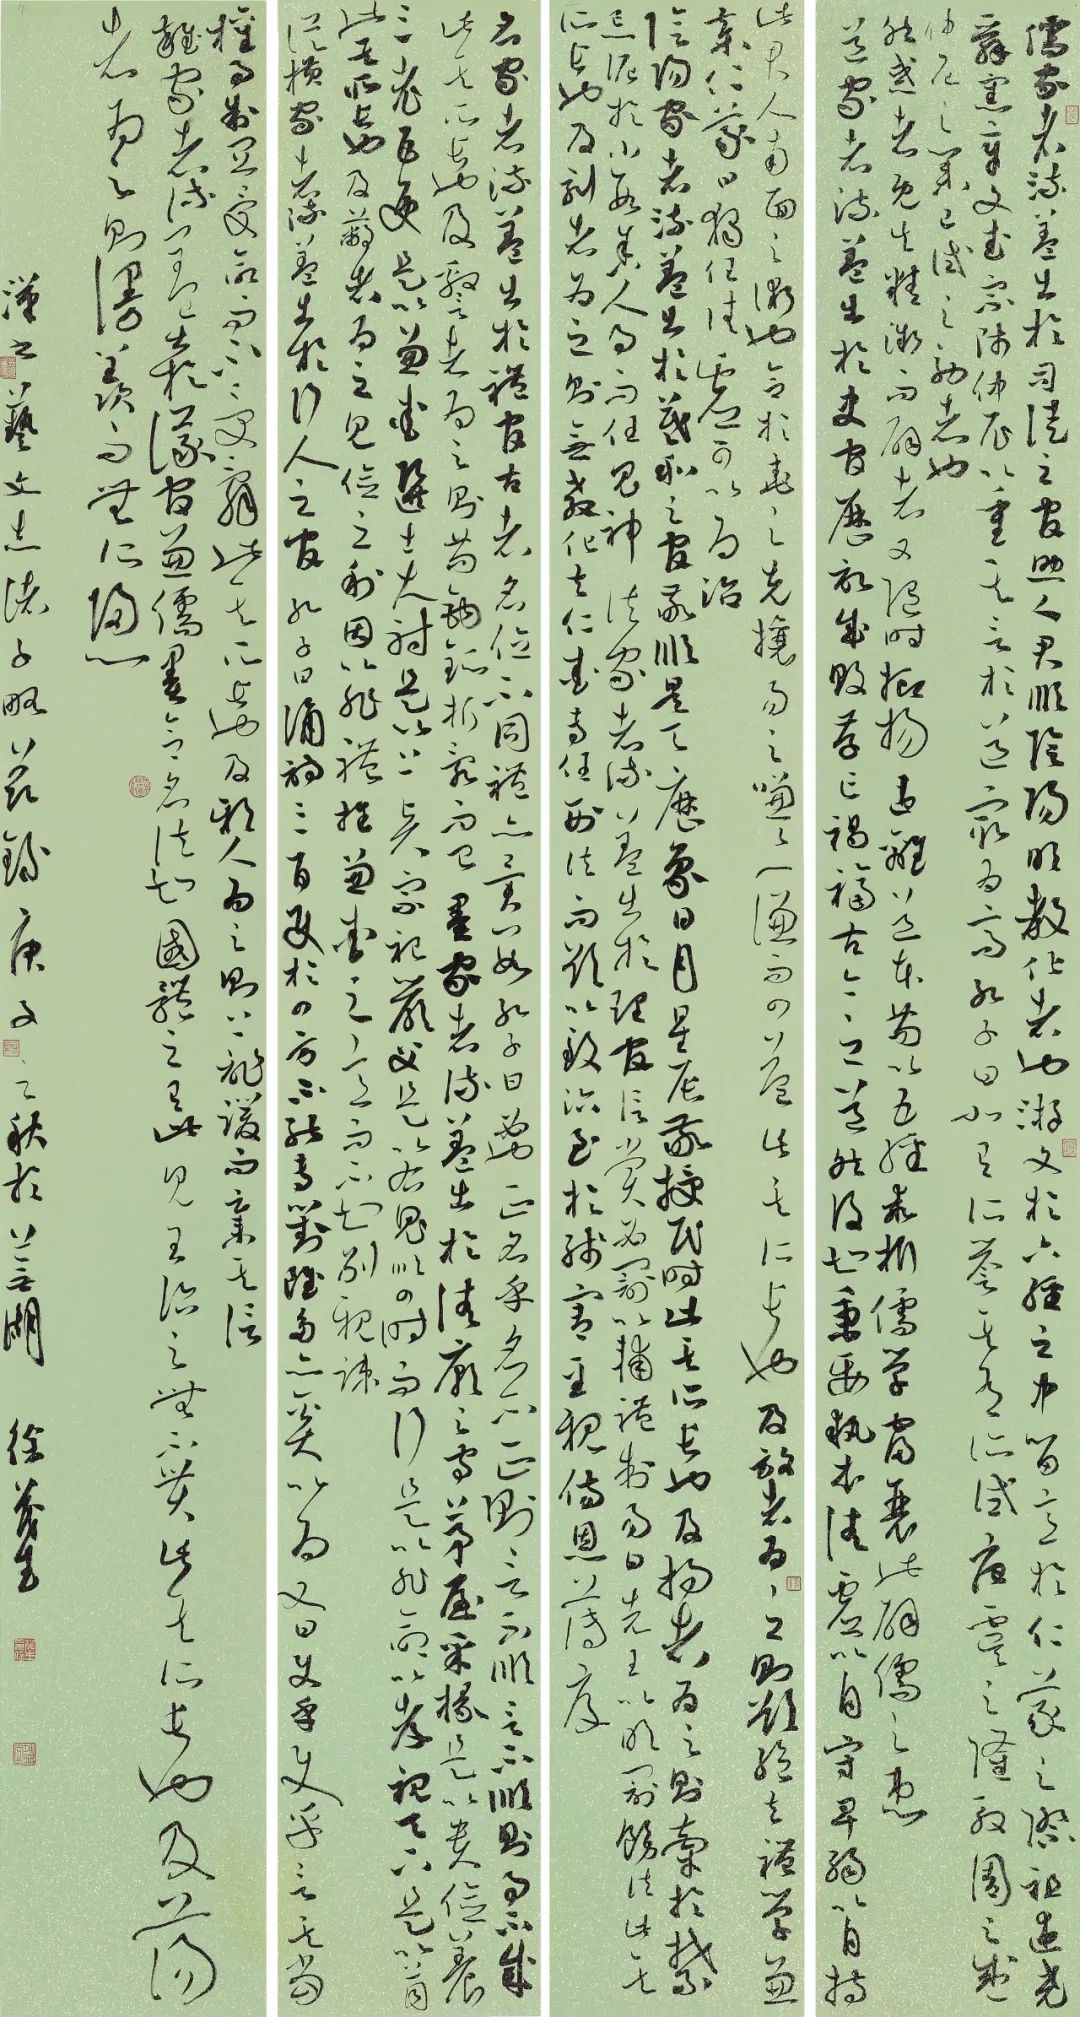 儒家者流蓋出於司徒之官助人君順陰陽明教化者也游文於六經之中留意於仁義之際祖述堯
舜憲章文武宗師仲尼以重其言於道最為高孔子曰如有所譽其有所試唐虞之隆殷周之盛
仲尼之業已試之効者也
然惑者既失精微而辟者又隨時抑揚違離道本苟以五經乖析儒學寖衰此辟儒之患
道家者流蓋出於史官歷記成敗存亡禍福古今之道然後知秉要執本清虛以自守卑弱以自持
此君人南面之術也合於堯之克攘易之嗛嗛一謙而四益此其所長也及放者為之則欲絕去禮學兼
棄仁義曰獨任清虛可以為治
陰陽家者流蓋出於羲和之官敬順昊天歷象日月星辰敬授民時此其所長也及拘者為之則牽於禁
忌泥於小數舍人事而任鬼神法家者流蓋出於理官信賞必罰以輔禮制易曰先王以明罰飭法此其
所長也及刻者為之則無教化去仁愛專任刑法而欲以致治至於殘害至親傷恩薄厚
名家者流蓋出於禮官古者名位不同禮亦異數孔子曰必也正名乎名不正則言不順言不順則事不成
此其所長也及警者為之則苟鉤鈲析亂而已墨家者流蓋出於清廟之守茅屋采椽是以貴儉養
三老五更是以兼愛選士大射是以上賢宗祀嚴父是以右鬼順四時而行是以非命以孝視天下是以上同
此其所長也及蔽者為之見儉之利因以非禮推兼愛之意而不知別親疏
從橫家者流蓋出於行人之官孔子曰誦詩三百使於四方不能專對雖多亦奚以為又曰使乎使乎言其當
權事制宜受命而不受辭此其所長也及邪人為之則上詐諼而棄其信
雜家者流蓋出於議官兼儒墨合名法知國體之有此見王治之無不貫此其所長也及盪
者為之則漫羨而無所歸心
漢書藝文志諸子略節錄庚子之秋於湖徐